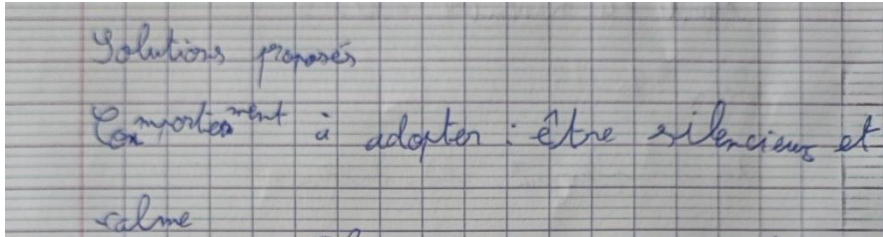 Solutions proposés
Comportement à adopter : être silencieux et
calme